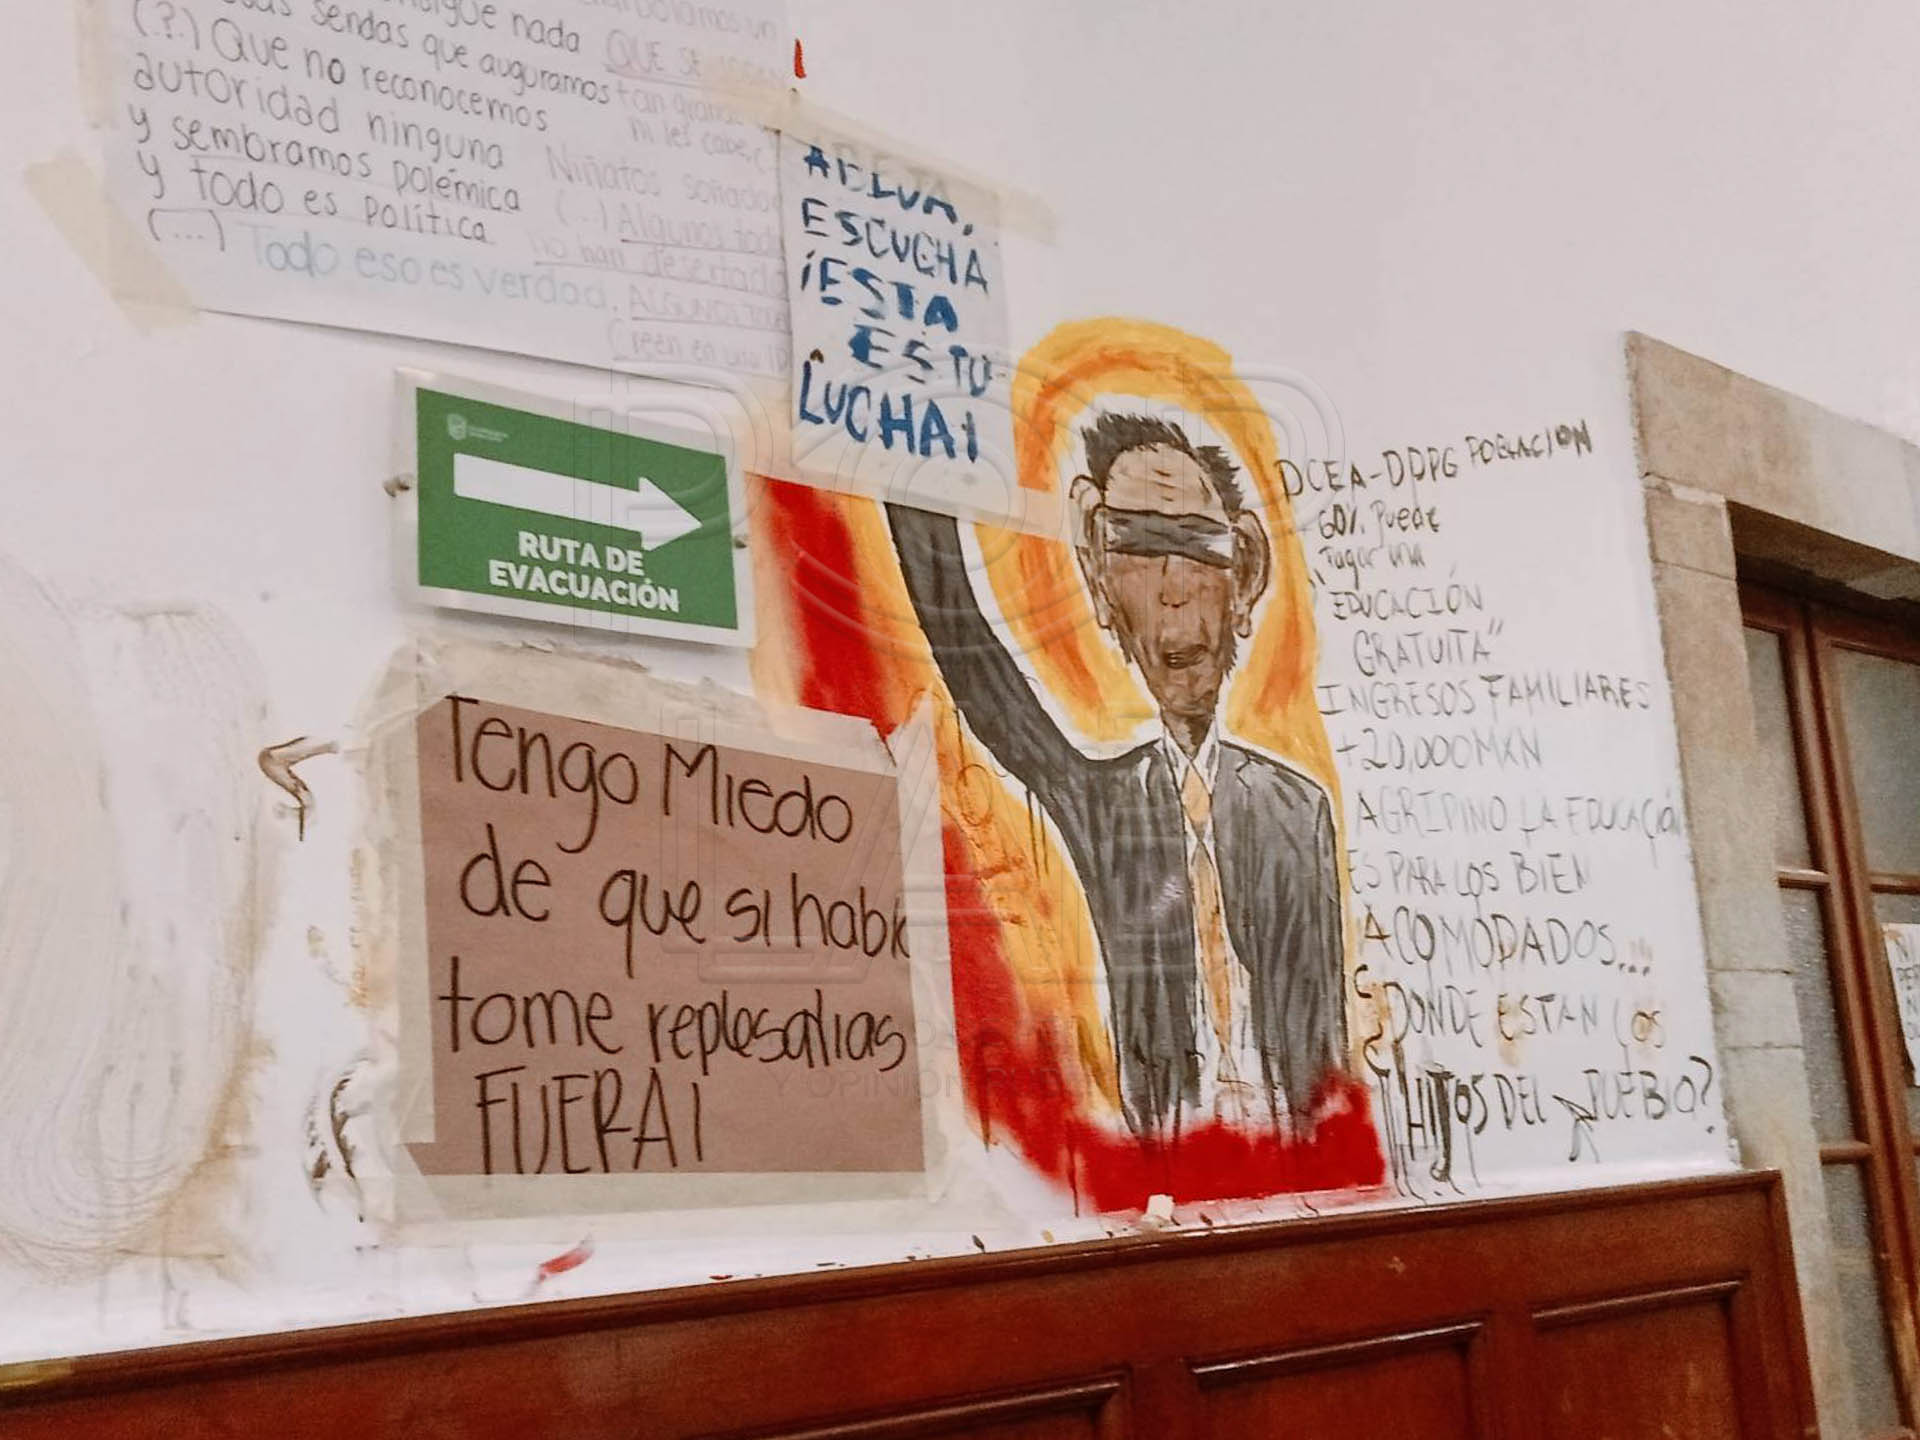 nada
sendas que auguramos
(.?.) Que no reconocemos
autoridad ninguna
y sembramos polémica
y todo es política
(...) Todo eso es verdad.
QUE SE
tan
ni les cabe,
Niñatos
(...) Algunos
no han
ALGUNOS
Creen en una
ABEJA,
ESCUCHA
¡ESTA
ES TU
LUCHA!
RUTA DE
EVACUACIÓN
Tengo Miedo
de que si habl
tome replesalias
FUERA!
DCEA-DDPG POBLACION
60% Puede
Pagar una
"EDUCACIÓN
GRATUITA"
INGRESOS FAMILIARES
+20,000MXN
AGRIPINO LA EDUCACIÓN
ES PARA LOS BIEN
ACOMODADOS...
¿DONDE ESTAN LOS
HIJOS DEL PUEBLO?
POP
LAB
Y OPINIÓN